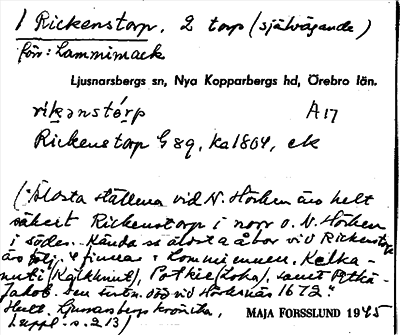 1 Rickenstorp. 2 torp (självägande)
förr: Lammimack
Ljusnarsbergs sn, Nya Kopparbergs hd, Örebro län.
rikanstórp A 17
Rickenstorp G 89, ka 1804, ek
("Äldsta ställena vid N. Hörken äro helt
säkert Rickenstorp i norr o. N. Hörken
i söder. Kända ss äldsta åbor vid Rickenstorp
äro följ. finnar: Lommiennen, Kelka-
nuti (Kalkknut), Potkie (Loka), samt Pitkä-
Jakob. Den sistn. död vid Hörksnäs 1672."
Hult. Ljusnarsbergs krönika,
suppl. s. 213)
MAJA FORSSLUND 1945